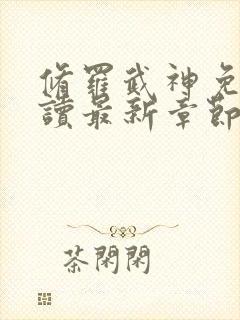 脩羅武神免
讀最新章節
茶閑閑